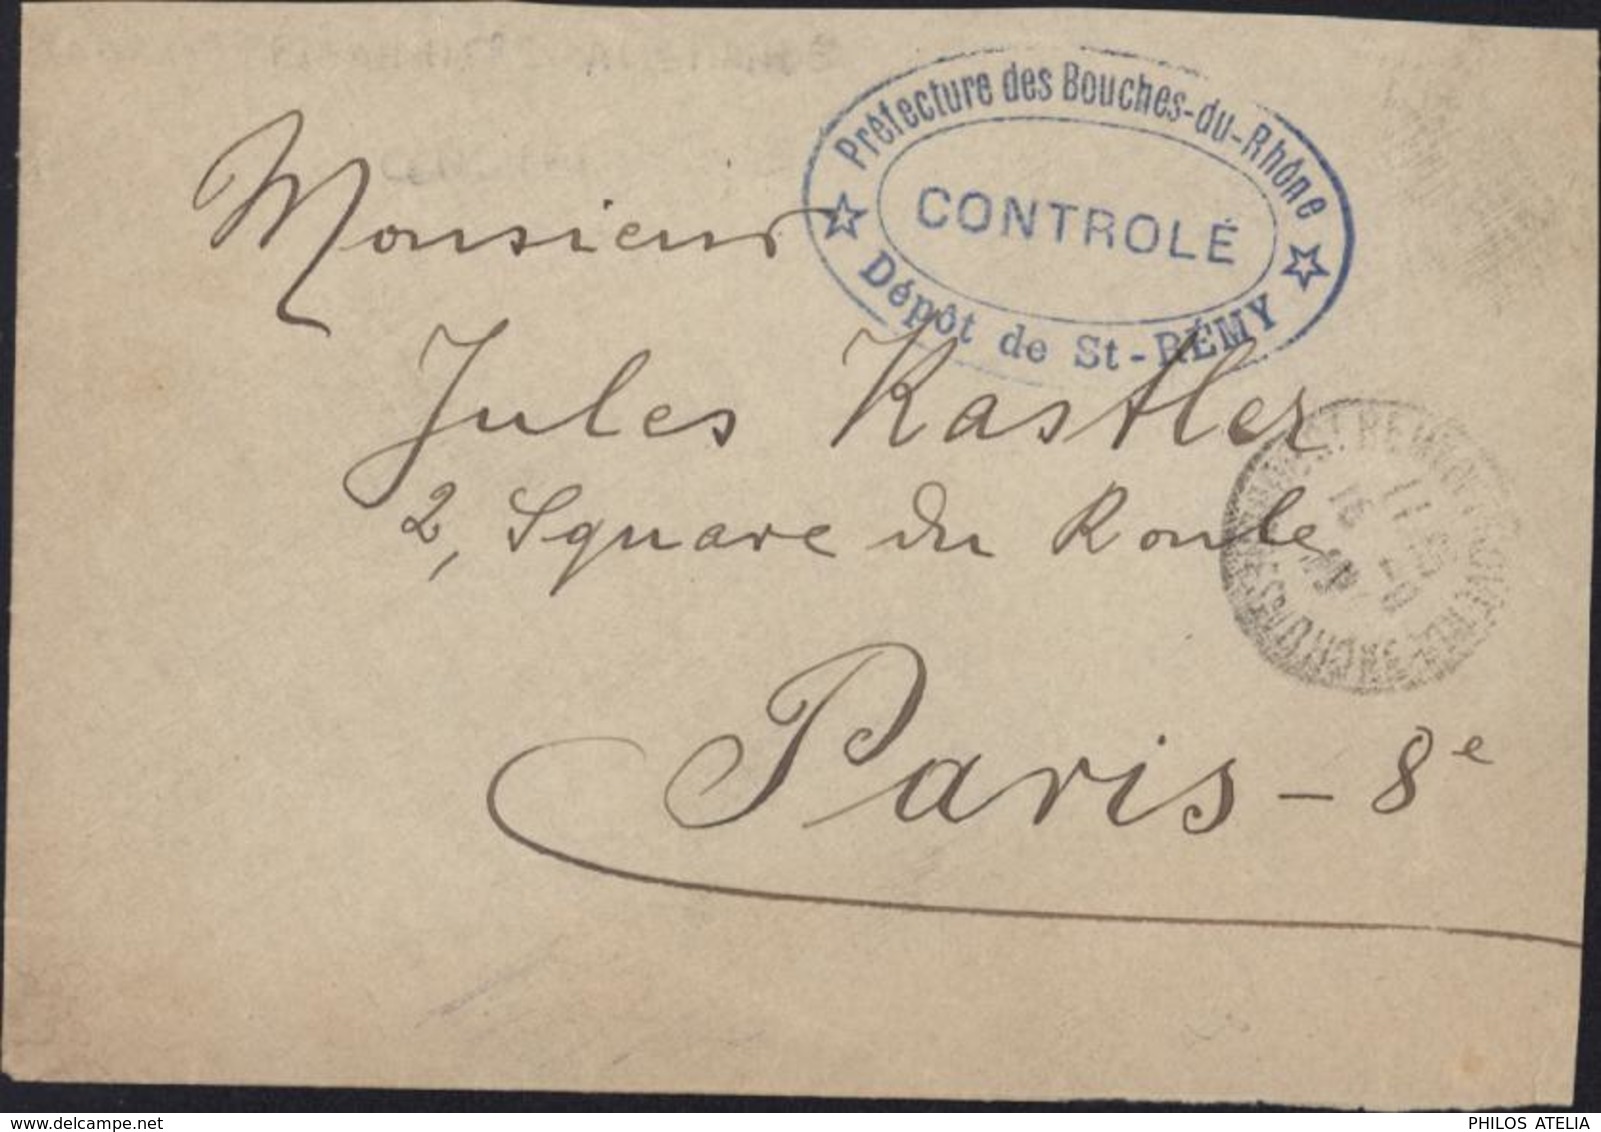 Préfecture des Bouches-du-Rhône
CONTROLÉ
Dépôt de St-RÉMY
Monsieur
Jules Kastler
2, Square du Roule
Paris - 8e
delcampe.net
PHILOS ATELIA